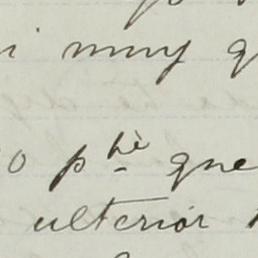 i muy q
o pte que
ulterior